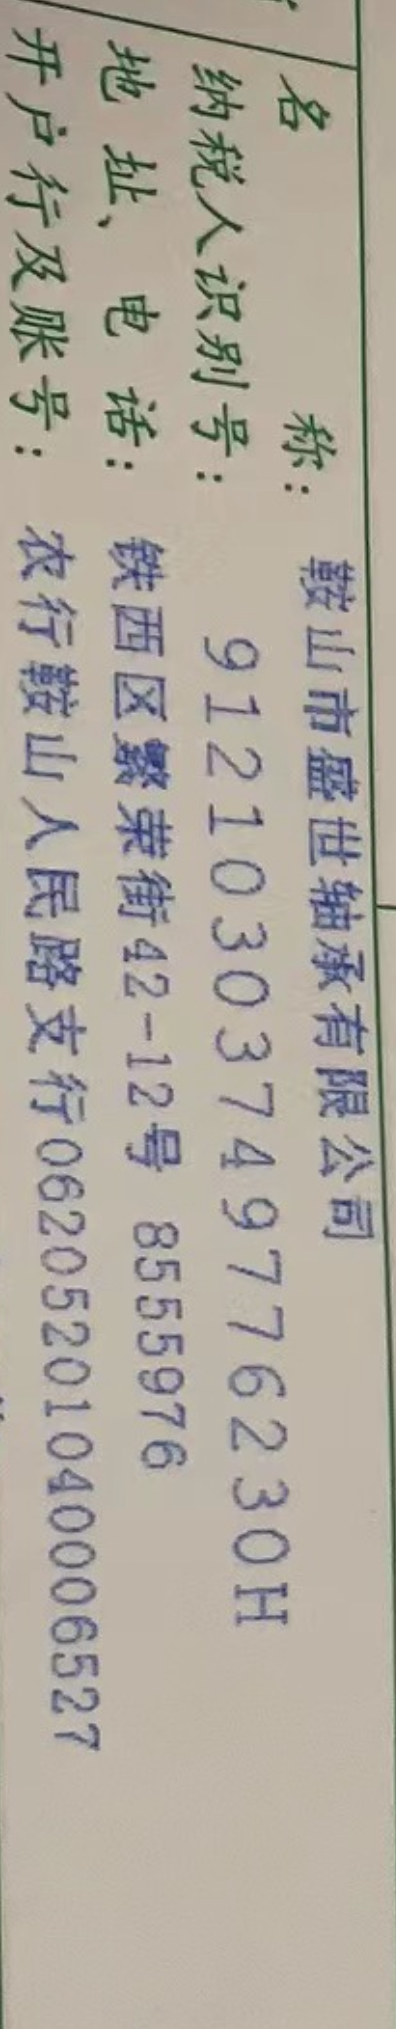 名称：鞍山市盛世轴承有限公司
纳税人识别号：91210303749776230H
地址、电话：铁西区繁荣街42-12号 8555976
开户行及账号：农行鞍山人民路支行06205201040006527